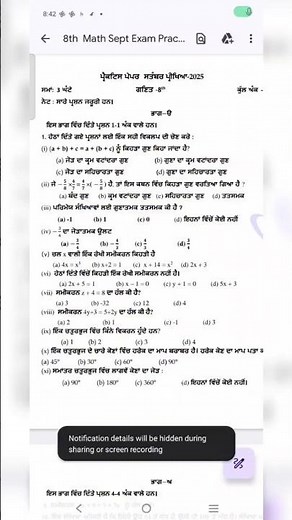 8:42
8th Math Sept Exam Prac...
ਪ੍ਰੈਕਟਿਸ ਪੇਪਰ ਸਤੰਬਰ ਪ੍ਰੀਖਿਆ-2025
ਸਮਾਂ: 3 ਘੰਟੇ ਗਣਿਤ -8ᵗʰ ਕੁੱਲ ਅੰਕ -
ਨੋਟ : ਸਾਰੇ ਪ੍ਰਸ਼ਨ ਜ਼ਰੂਰੀ ਹਨ।
ਭਾਗ-ੳ
ਇਸ ਭਾਗ ਵਿੱਚ ਦਿੱਤੇ ਪ੍ਰਸ਼ਨ 1-1 ਅੰਕ ਵਾਲੇ ਹਨ।
1. ਹੇਠਾਂ ਦਿੱਤੇ ਗਏ ਪ੍ਰਸ਼ਨਾਂ ਲਈ ਇੱਕ ਸਹੀ ਵਿਕਲਪ ਦੀ ਚੋਣ ਕਰੋ :
(i) (a + b) + c = a + (b + c) ਨੂੰ ਕਿਹੜਾ ਗੁਣ ਕਿਹਾ ਜਾਂਦਾ ਹੈ?
(a) ਜੋੜ ਦਾ ਕ੍ਰਮ ਵਟਾਂਦਰਾ ਗੁਣ (b) ਗੁਣਾ ਦਾ ਕ੍ਰਮ ਵਟਾਂਦਰਾ ਗੁਣ
(c) ਜੋੜ ਦਾ ਸਹਿਚਾਰਤਾ ਗੁਣ (d) ਗੁਣਾ ਦਾ ਸਹਿਚਾਰਤਾ ਗੁਣ
ਹੈ, ਤਾਂ ਇਸ ਕਥਨ ਵਿੱਚ ਕਿਹੜਾ ਗੁਣ ਵਰਤਿਆ ਗਿਆ ਹੈ ?
(a) ਬੰਦ ਗੁਣ (b) ਕ੍ਰਮ ਵਟਾਂਦਰਾ ਗੁਣ (c) ਸਹਿਚਾਰਤਾ ਗੁਣ (d) ਤਤਸਮਕ
(iii) ਪਰਿਮੇਯ ਸੰਖਿਆਵਾਂ ਲਈ ਗੁਣਾਤਮਕ ਤਤਸਮਕ ਕੀ ਹੈ ?
(a) -1 (b) 1 (c) 0 (d) ਇਹਨਾਂ ਵਿੱਚੋਂ ਕੋਈ ਨਹੀਂ
(iv) ਦਾ ਜੋੜਾਤਮਕ ਉਲਟ
(a) (b) (c) (d)
(v) ਚਲ x ਵਾਲੀ ਇੱਕ ਰੇਖੀ ਸਮੀਕਰਨ ਕਿਹੜੀ ਹੈ
(a) 4x = x³ (b) x+2 = 1 (c) x + 14 = x² (d) 2x + 3
(vi) ਹੇਠਾਂ ਦਿੱਤੇ ਵਿੱਚੋਂ ਕਿਹੜੀ ਇੱਕ ਰੇਖੀ ਸਮੀਕਰਨ ਨਹੀਂ ਹੈ।
(a) 2x + 5 = 1 (b) x − 1 = 0 (c) y + 1 = 0 (d) 5x + 3
(vii) ਸਮੀਕਰਨ z + 4 = 8 ਦਾ ਹੱਲ ਕੀ ਹੈ?
(a) 3 (b) -32 (c) 12 (d) 4
(viii) ਸਮੀਕਰਨ 4y+3 = 5+2y ਦਾ ਹੱਲ ਕੀ ਹੈ?
(a) 2 (b) 1 (c) -1 (d) 3
(ix) ਇੱਕ ਚਤੁਰਭੁਜ ਵਿੱਚ ਕਿੰਨੇ ਵਿਕਰਨ ਹੁੰਦੇ ਹਨ?
(a) 1 (b) 2 (c) 3 (d) 4
(x) ਇੱਕ ਚਤੁਰਭੁਜ ਦੇ ਚਾਰੇ ਕੋਣਾਂ ਵਿੱਚ ਹਰੇਕ ਦਾ ਮਾਪ ਬਰਾਬਰ ਹੈ। ਹਰੇਕ ਕੋਣ ਦਾ ਮਾਪ ਪਤਾ
(a) 45° (b) 30° (c) 60° (d) 90°
(xi) ਸਮਾਂਤਰ ਚਤੁਰਭੁਜ ਵਿੱਚ ਲਾਗਵੇਂ ਕੋਣਾਂ ਦਾ ਜੋੜ :
(a) 90° (b) 180° (c) 360° (d) ਇਹਨਾਂ ਵਿੱਚੋਂ ਕੋਈ ਨਹੀਂ।
Notification details will be hidden during
sharing or screen recording
ਭਾਗ-ਅ
ਇਸ ਭਾਗ ਵਿੱਚ ਦਿੱਤੇ ਪ੍ਰਸ਼ਨ 4-4 ਅੰਕ ਵਾਲੇ ਹਨ।